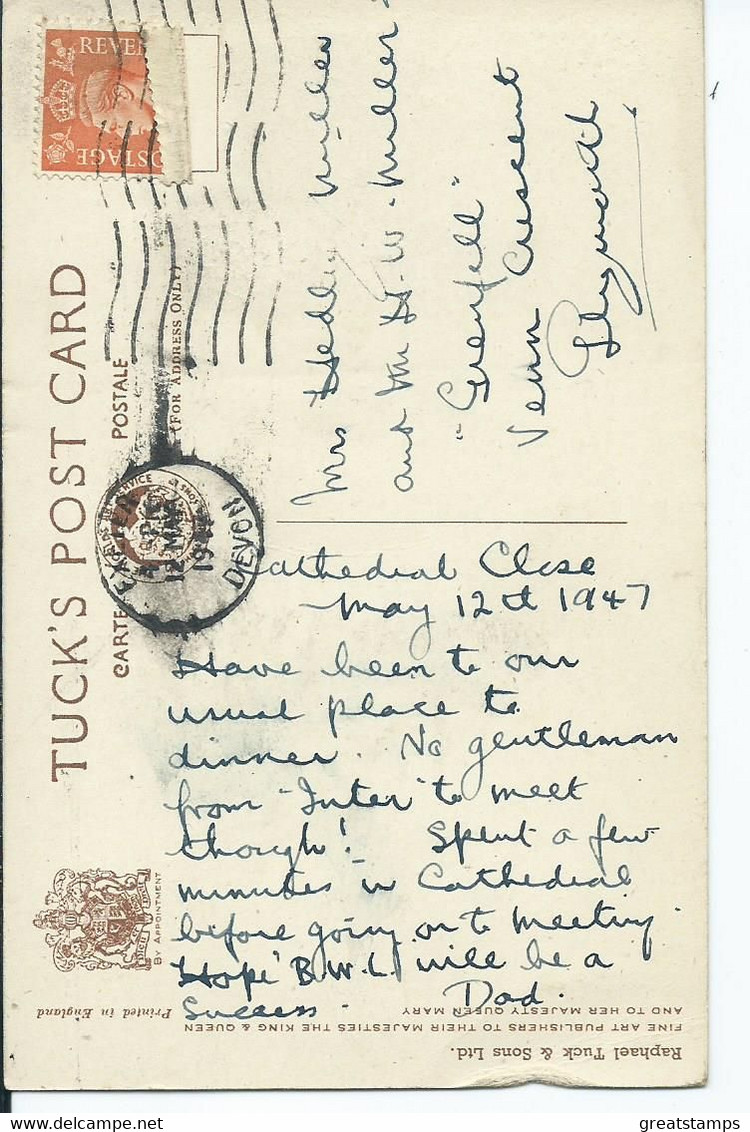 TUCK'S POST CARD
CARTE POSTALE
(FOR ADDRESS ONLY)
REVEN
POSTAGE
EXETER
12 MAY
19
DEVON
Cathedral Close
May 12th 1947
Have been to our
usual place to
dinner. No gentleman
from "Inter" to meet
though! Spent a few
minutes in Cathedral
before going on to meeting.
Hope B.W.L. will be a
success. Dad.
Mrs Hedley Miller
and Mr H. W. Miller
"Grenfell"
Venn Crescent
Plymouth
BY APPOINTMENT
Printed in England
Raphael Tuck & Sons Ltd.
FINE ART PUBLISHERS TO THEIR MAJESTIES THE KING & QUEEN
AND TO HER MAJESTY QUEEN MARY
greatstamps